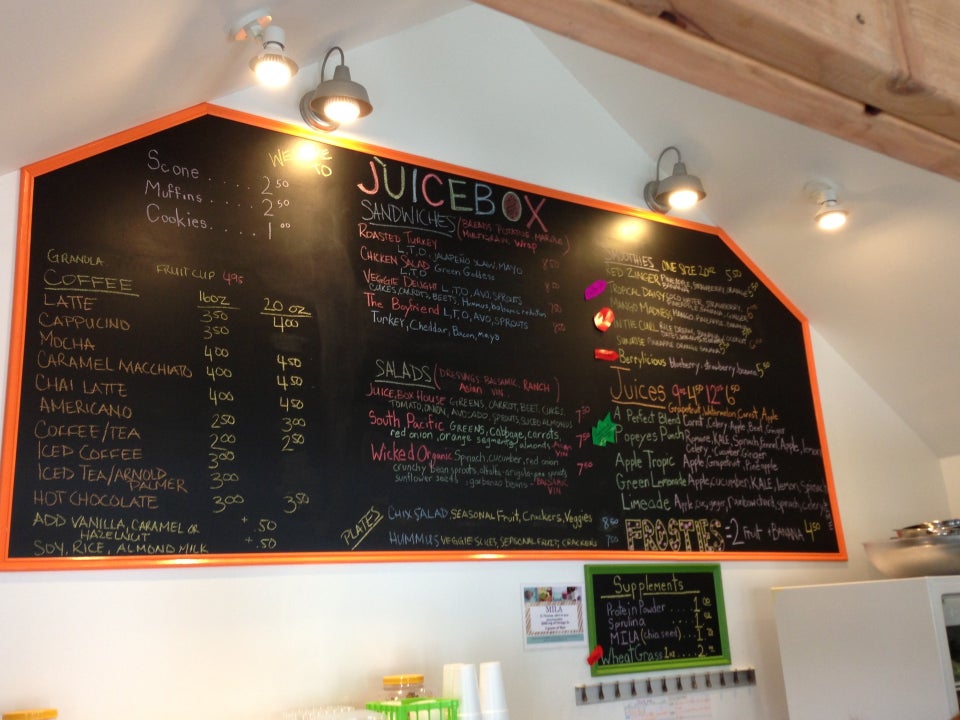 Scone ..... 2 50
Muffins .... 2 50
Cookies ..... 1 00
GRANOLA
FRUIT CUP 4.95
COFFEE 16OZ 20 OZ
LATTE 350 400
CAPPUCINO 350
MOCHA 400 450
CARAMEL MACCHIATO 400 450
CHAI LATTE 400 450
AMERICANO 250 300
COFFEE/TEA 200 250
ICED COFFEE 300
ICED TEA/ARNOLD PALMER 300
HOT CHOCOLATE 300 350
ADD VANILLA, CARAMEL OR HAZELNUT + .50
SOY, RICE, ALMOND MILK + .50
TO
JUICEBOX
SANDWICHES (BREADS POTATOE, MARBLE
MULTIGRAIN, Wrap)
ROASTED TURKEY
L,T,O, JALAPEÑO SLAW, MAYO 850
CHICKEN SALAD
L,T,O Green Goddess
VEGGIE DELIGHT L,T,O, AVO, SPROUTS
CUKES, CARROTS, BEETS, Hummus, balsamic
The Boyfriend L,T,O, AVO, SPROUTS
Turkey, Cheddar, Bacon, Mayo
SALADS (DRESSINGS BALSAMIC, RANCH
Asian VIN.)
JUICE BOX HOUSE GREENS, CARROT, BEET, CUKES
TOMATO, ONION, AVO, ADD SPROUTS, SLICED ALMONDS 750
South Pacific GREENS, cabbage, carrots,
red onion, orange segments, almonds, Asian VIN
Wicked Organic Spinach, cucumber, red onion
crunchy bean sprouts, alfalfa-arugula-pea sprouts
sunflower seeds, garbanzo beans - BALSAMIC VIN
PLATES
CHIX SALAD SEASONAL Fruit, Crackers, Veggies 850
HUMMUS VEGGIE SLICES, SEASONAL FRUIT, CRACKERS
SMOOTHIES ONE SIZE 20OZ 550
RED ZINGER
TROPICAL DAISY
MANGO MADNESS
IN THE CURL
SUNRISE PINEAPPLE ORANGE BANANA
Berrylicious blueberry, strawberry, banana 550
Juices
Grapefruit, Watermelon, Carrot, Apple
A Perfect Blend Carrot, Celery, Apple, Beet
Popeyes Punch Romaine, KALE, Spinach, Fennel, Apple, lemon
Celery - Cucumber Ginger
Apple Tropic Apple, Grapefruit, Pineapple
Green Lemonade Apple, Cucumber, KALE, lemon, Spinach
Limeade
FROSTIES = 2 FRUIT + BANANA 450
Supplements
Protein Powder .... 1 00
Spirulina ..... 1
MILA (chia seed) .... 1
Wheat Grass 2oz .... 2
MILA